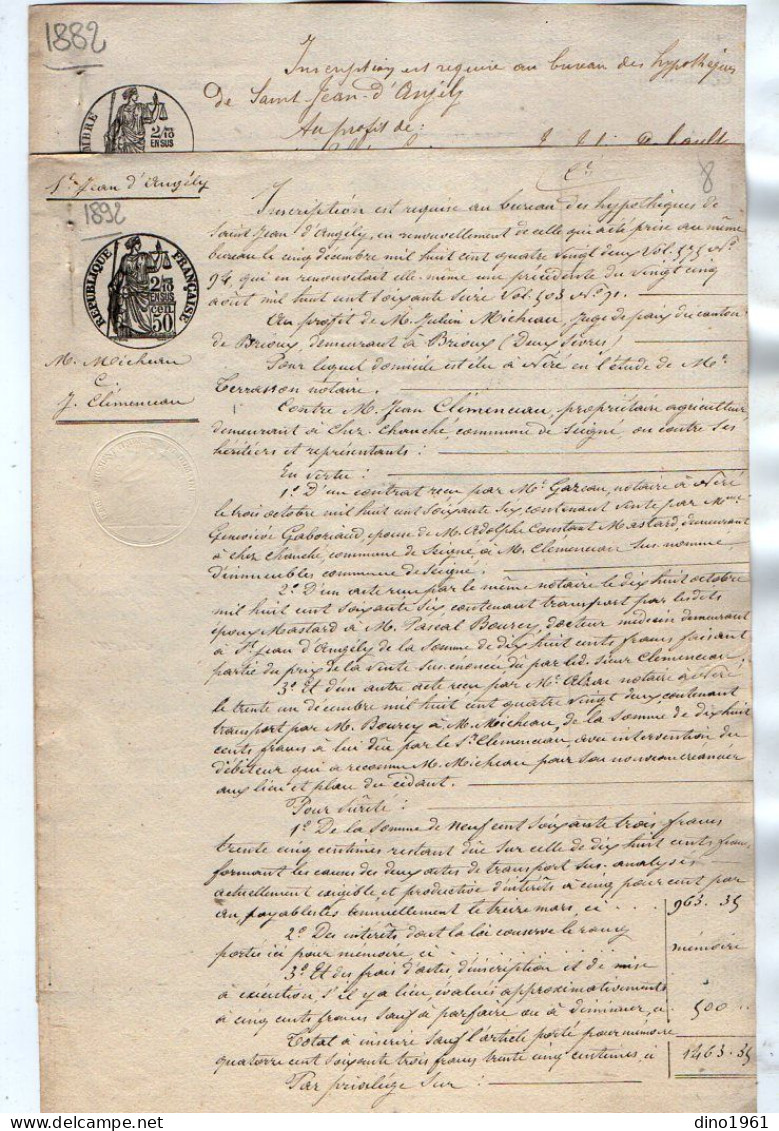 1882
Inscription est requise au bureau des hypothèques
de Saint-Jean-d'Angély
Au profit de :
2/10
EN SUS
St Jean d'Angély
1892
8
RÉPUBLIQUE FRANÇAISE
2/10
EN SUS
50 cen
M. Micheau
C.
J. Clémenceau
Inscription est requise au bureau des hypothèques de
Saint Jean d'Angély, en renouvellement de celle qui a été prise au même
bureau le cinq décembre mil huit cent quatre vingt deux Vol. 575 No.
94, qui en renouvelait elle-même une précédente du vingt cinq
août mil huit cent soixante seize Vol. 503 No. 71.
Au profit de M. Justin Micheau, Juge de paix du canton
de Brioux, demeurant à Brioux (Deux Sèvres)
Pour lequel domicile est élu à Néré en l'étude de Me.
Terrasson notaire.
Contre M. Jean Clémenceau, propriétaire agriculteur,
demeurant à Chez Chauché commune de Seigné ou contre ses
héritiers et représentants :
En vertu :
1º. D'un contrat reçu par Me. Gazeau, notaire à Néré
le trois octobre mil huit cent soixante six contenant vente par Mme.
Geneviève Gaboriaud, épouse de M. Adolphe Constant Mastard, demeurant
à chez Chauché commune de Seigné à M. Clémenceau sus-nommé
d'immeubles commune de Seigné :
2º. D'un acte reçu par le même notaire le dix huit octobre
mil huit cent soixante six, contenant transport par lesdits
époux Mastard à M. Pascal Bourcy, docteur médecin demeurant
à St. Jean d'Angély de la somme de dix huit cents francs faisant
partie du prix de la vente sus-énoncée dû par led. sieur Clémenceau.
3º. Et d'un autre acte reçu par Me. notaire à Néré
le trente un décembre mil huit cent quatre vingt deux, contenant
transport par M. Bourcy à M. Micheau, de la somme de dix huit
cents francs à lui dûe par le Sr. Clémenceau, avec intervention du
débiteur qui a reconnu M. Micheau pour son nouveau créancier
aux lieu et place du cédant.
Pour sûreté :
1º. De la somme de neuf cent soixante trois francs
trente cinq centimes restant dûe sur celle de dix huit cents francs,
formant les causes des deux actes de transport sus-analysés
actuellement exigible, et productive d'intérêts à cinq pour cent par
an payables annuellement le treize mars, ci . . . 963. 35
2º. Des intérêts dont la loi conserve le rang
portés ici pour mémoire, ci . . . mémoire
3º. Et des frais d'actes d'inscription et de mise
à exécution, s'il y a lieu, évalués approximativement
à cinq cents francs sauf à parfaire ou à diminuer, ci 500 . .
Total à inscrire sauf l'article porté pour mémoire
quatorze cent soixante trois francs trente cinq centimes, ci 1463. 35
Par privilège sur :
dino1961